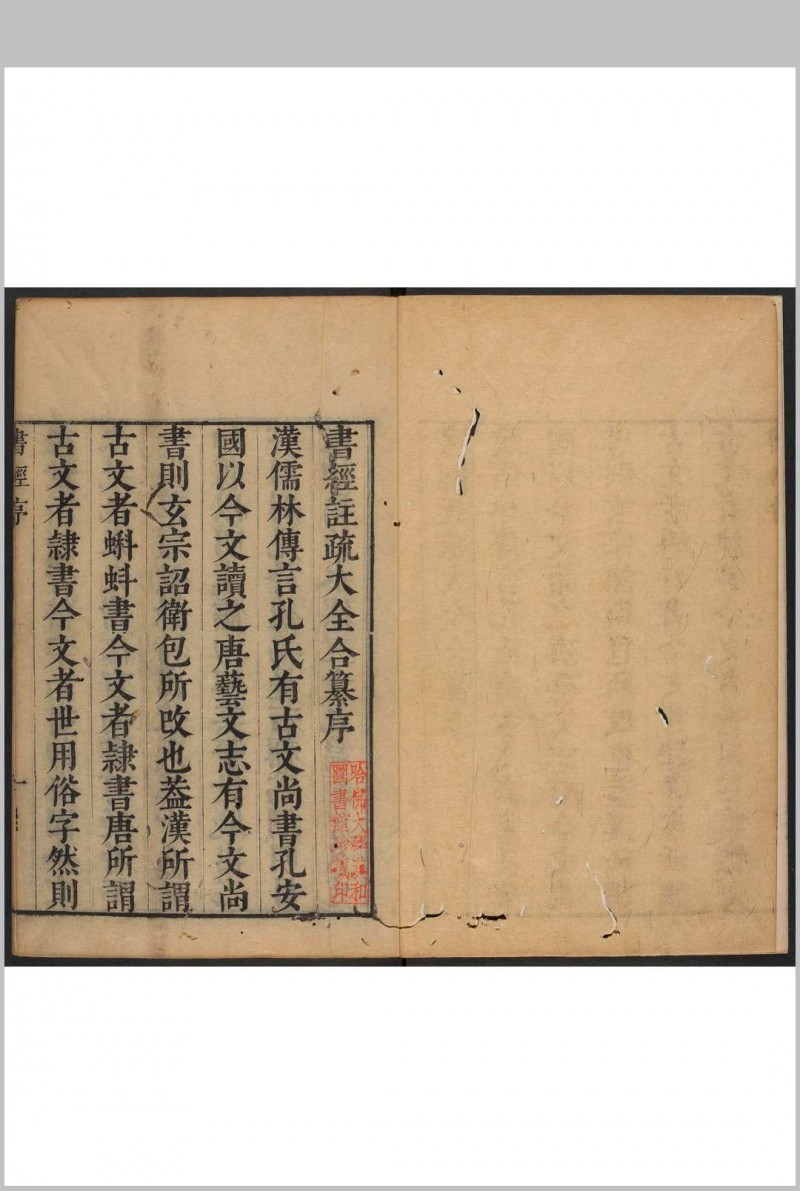 書經註疏大全合纂序
漢儒林傳言孔氏有古文尚書孔安
國以今文讀之唐藝文志有今文尚
書則玄宗詔衛包所改也葢漢所謂
古文者蝌蚪書今文者隸書唐所謂
古文者隸書今文者世用俗字然則
書經序
一
哈佛大
圖書